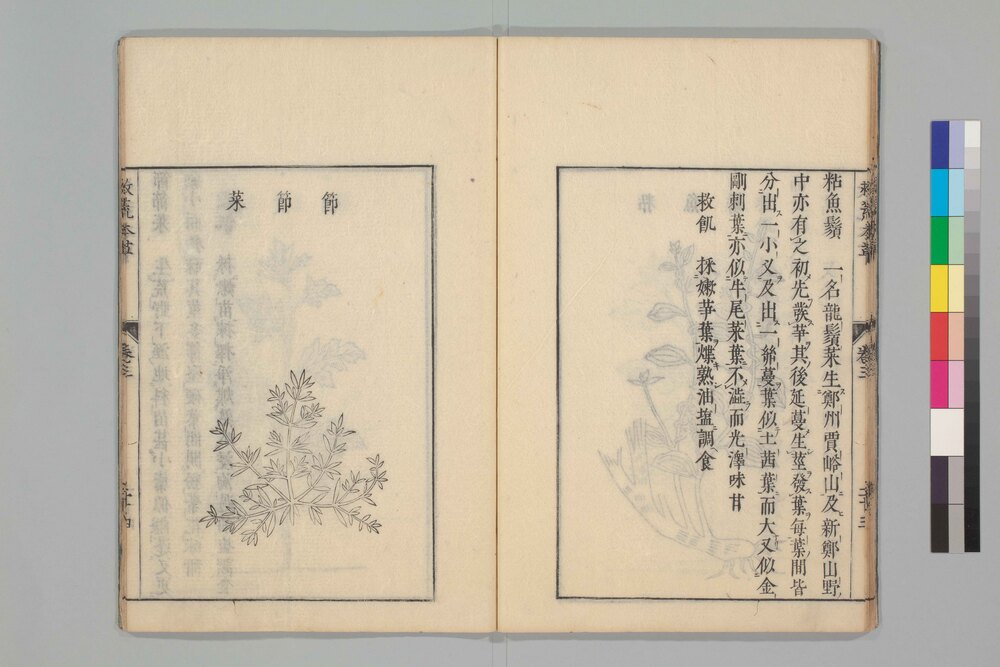 粘魚鬚　一名龍鬚菜生鄭州賈峪山及新鄭山野
中亦有之初先發笋其後延蔓生莖發葉毎葉間皆
分出一小叉及出一絲蔓葉似土茜葉而大又似金
剛刺葉亦似牛尾菜葉不澁而光澤味甘
救飢　採嫩笋葉煠熟油塩調食
救荒本草
卷三
二十三
節節菜
救荒本草
卷三
二十四